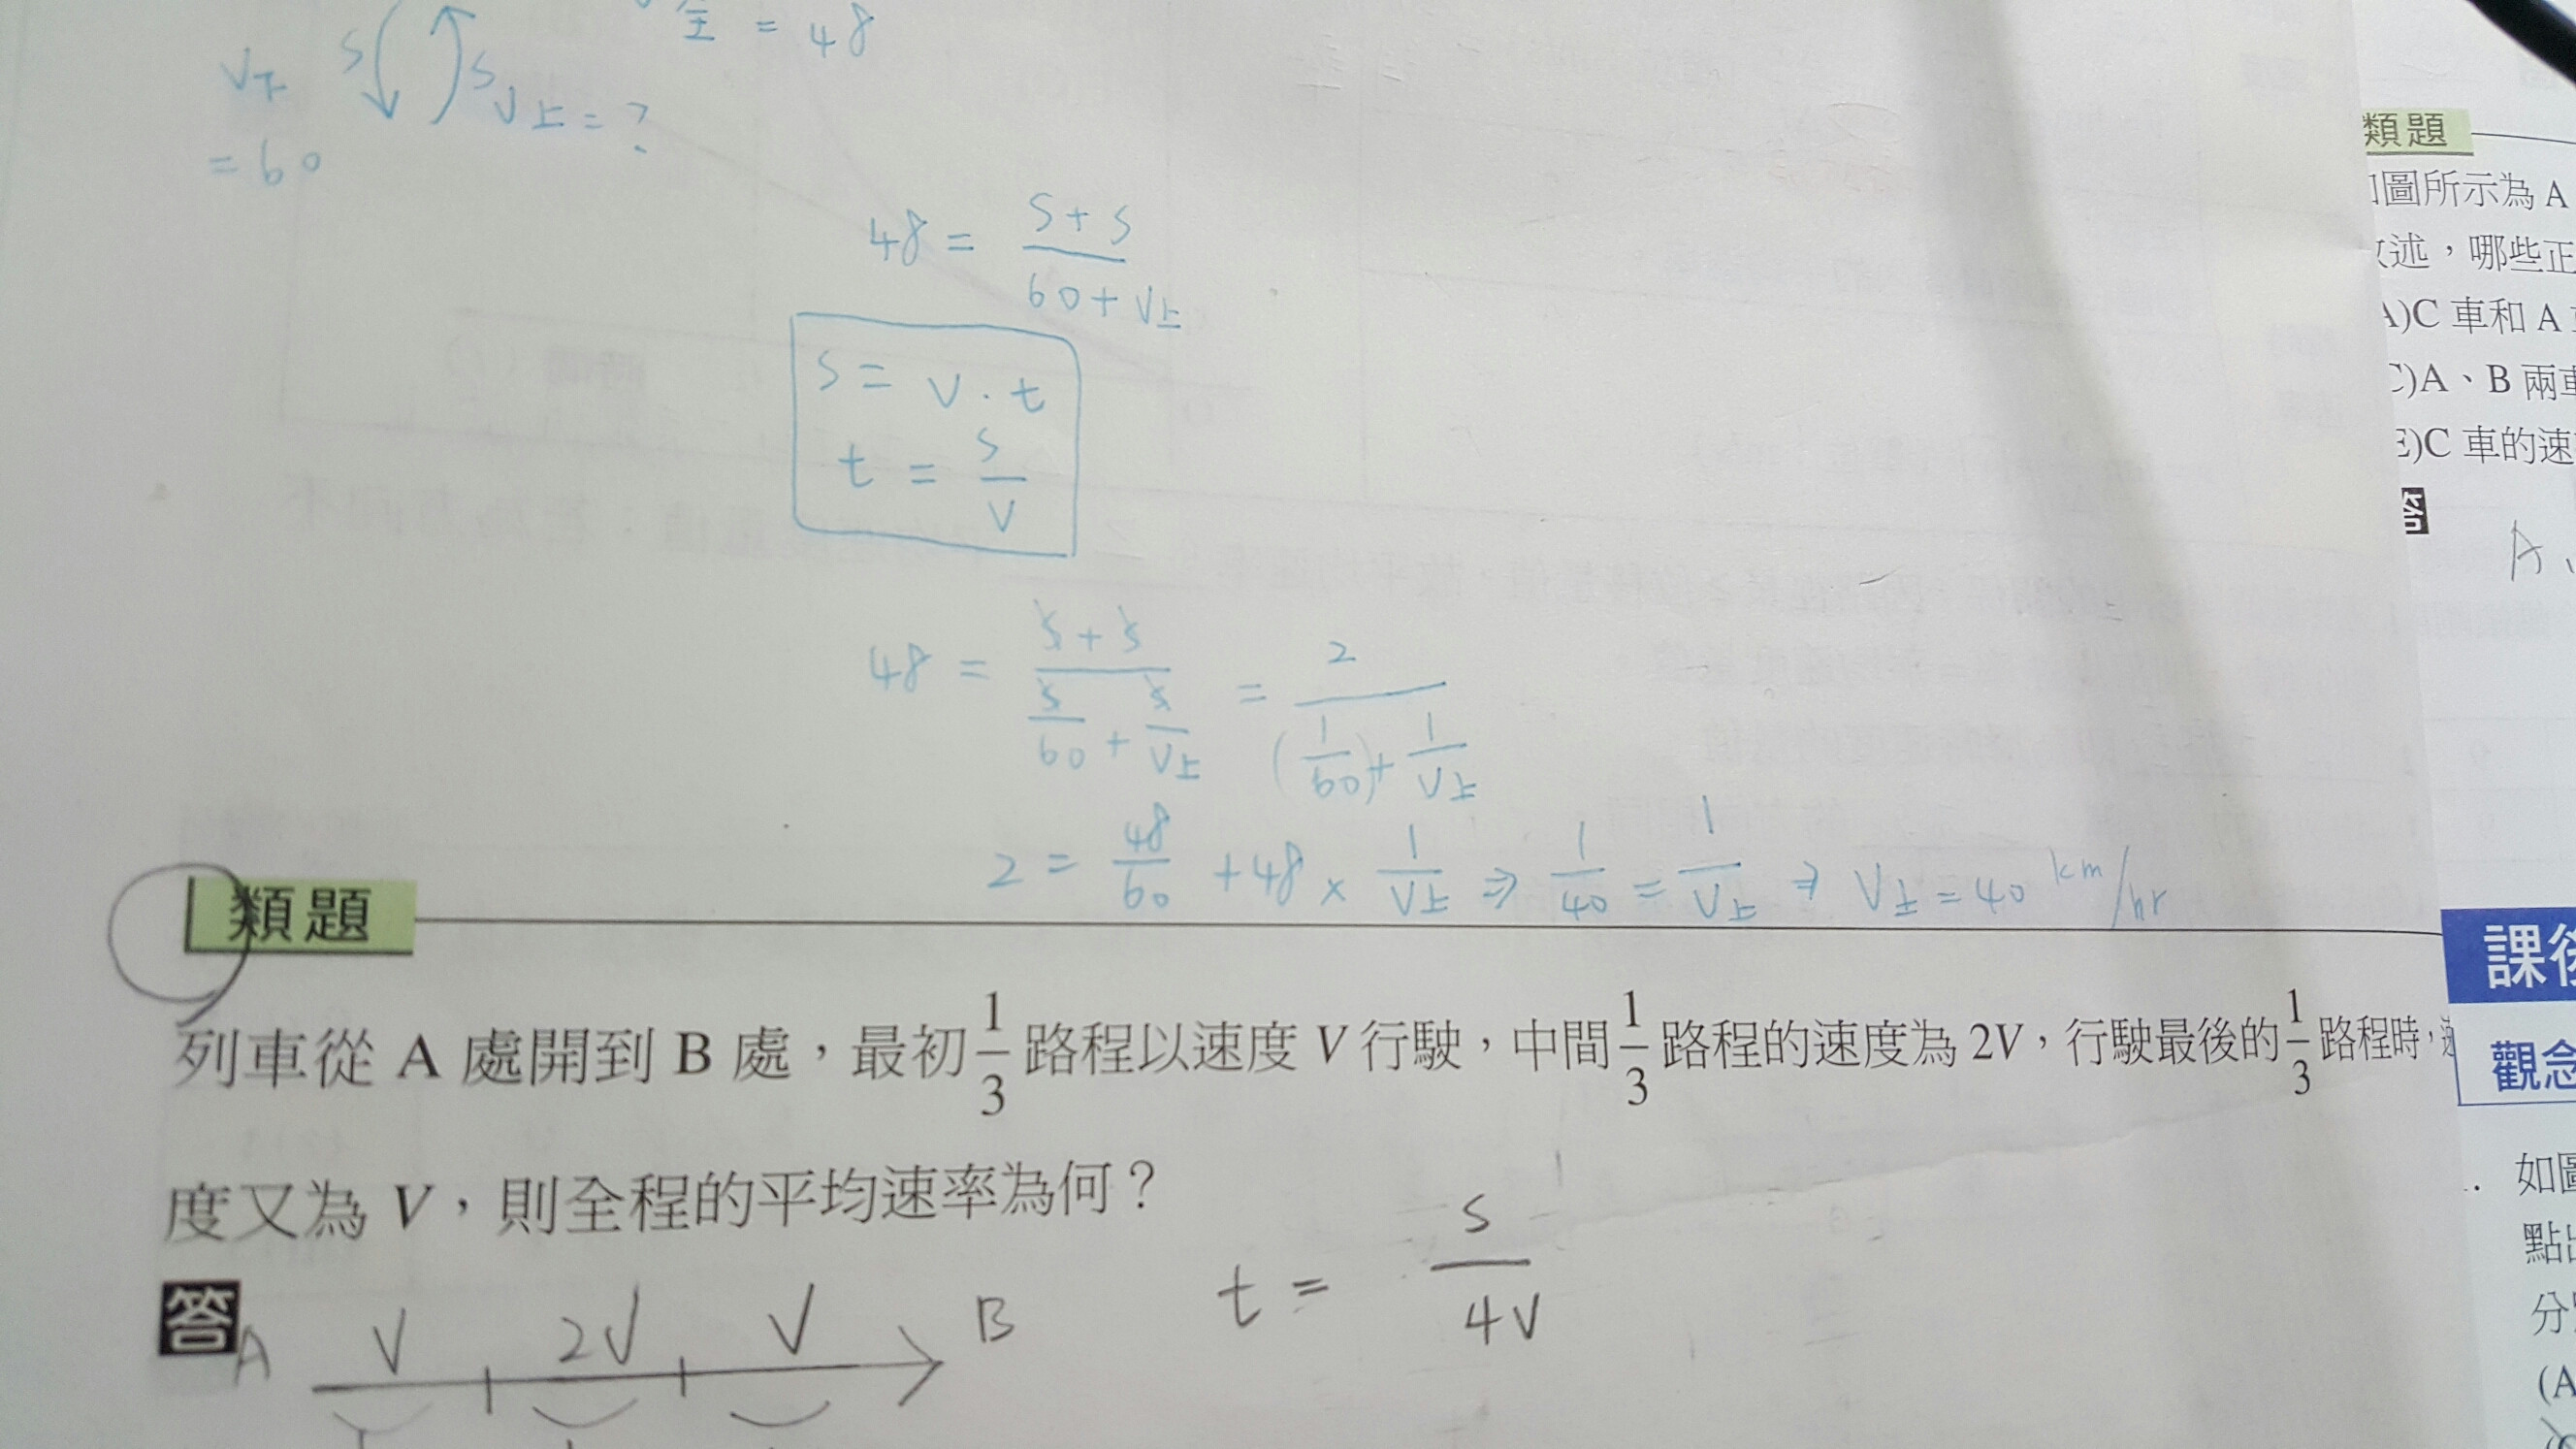 V全 = 48
V下 S S V上 = ?
= 60
48 = (S + S) / (60 + V上)
S = V · t
t = S / V
48 = (S + S) / (S/60 + S/V上) = 2 / ((1/60) + 1/V上)
2 = 48/60 + 48 × 1/V上 ⇒ 1/40 = 1/V上 ⇒ V上 = 40 km/hr
類題
列車從 A 處開到 B 處，最初 1/3 路程以速度 V 行駛，中間 1/3 路程的速度為 2V，行駛最後的 1/3 路程時，速
度又為 V，則全程的平均速率為何？
答
A V 2V V B
t = S / 4V
類題
圖所示為 A
述，哪些正
A)C 車和 A
C)A、B 兩車
E)C 車的速
答
A
課後
觀念
如圖
點出
分
(A